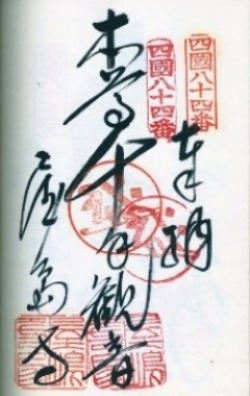 四國八十四番
四國八十四番
奉納
本尊十一面観音
屋島寺